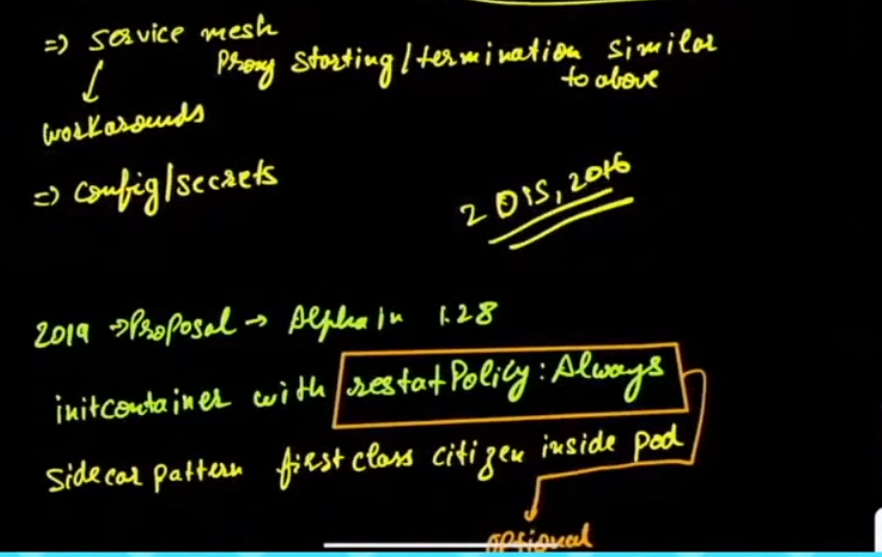 => Service mesh
Proxy starting/termination similar
to above
workarounds
=> Config/secrets
2015, 2016
2019 → Proposal → Alpha in 1.28
initcontainer with restatPolicy: Always
Sidecar pattern first class citizen inside pod
optional